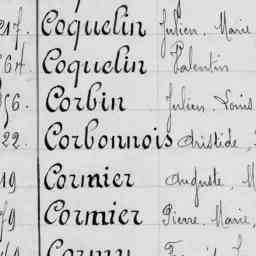 217. Coquelin Julien. Marie
564. Coquelin Valentin
556. Corbin Julien. Louis
22. Corbonnois Aristide,
19 Cormier Auguste, M
79 Cormier Pierre. Marie,
Cormy